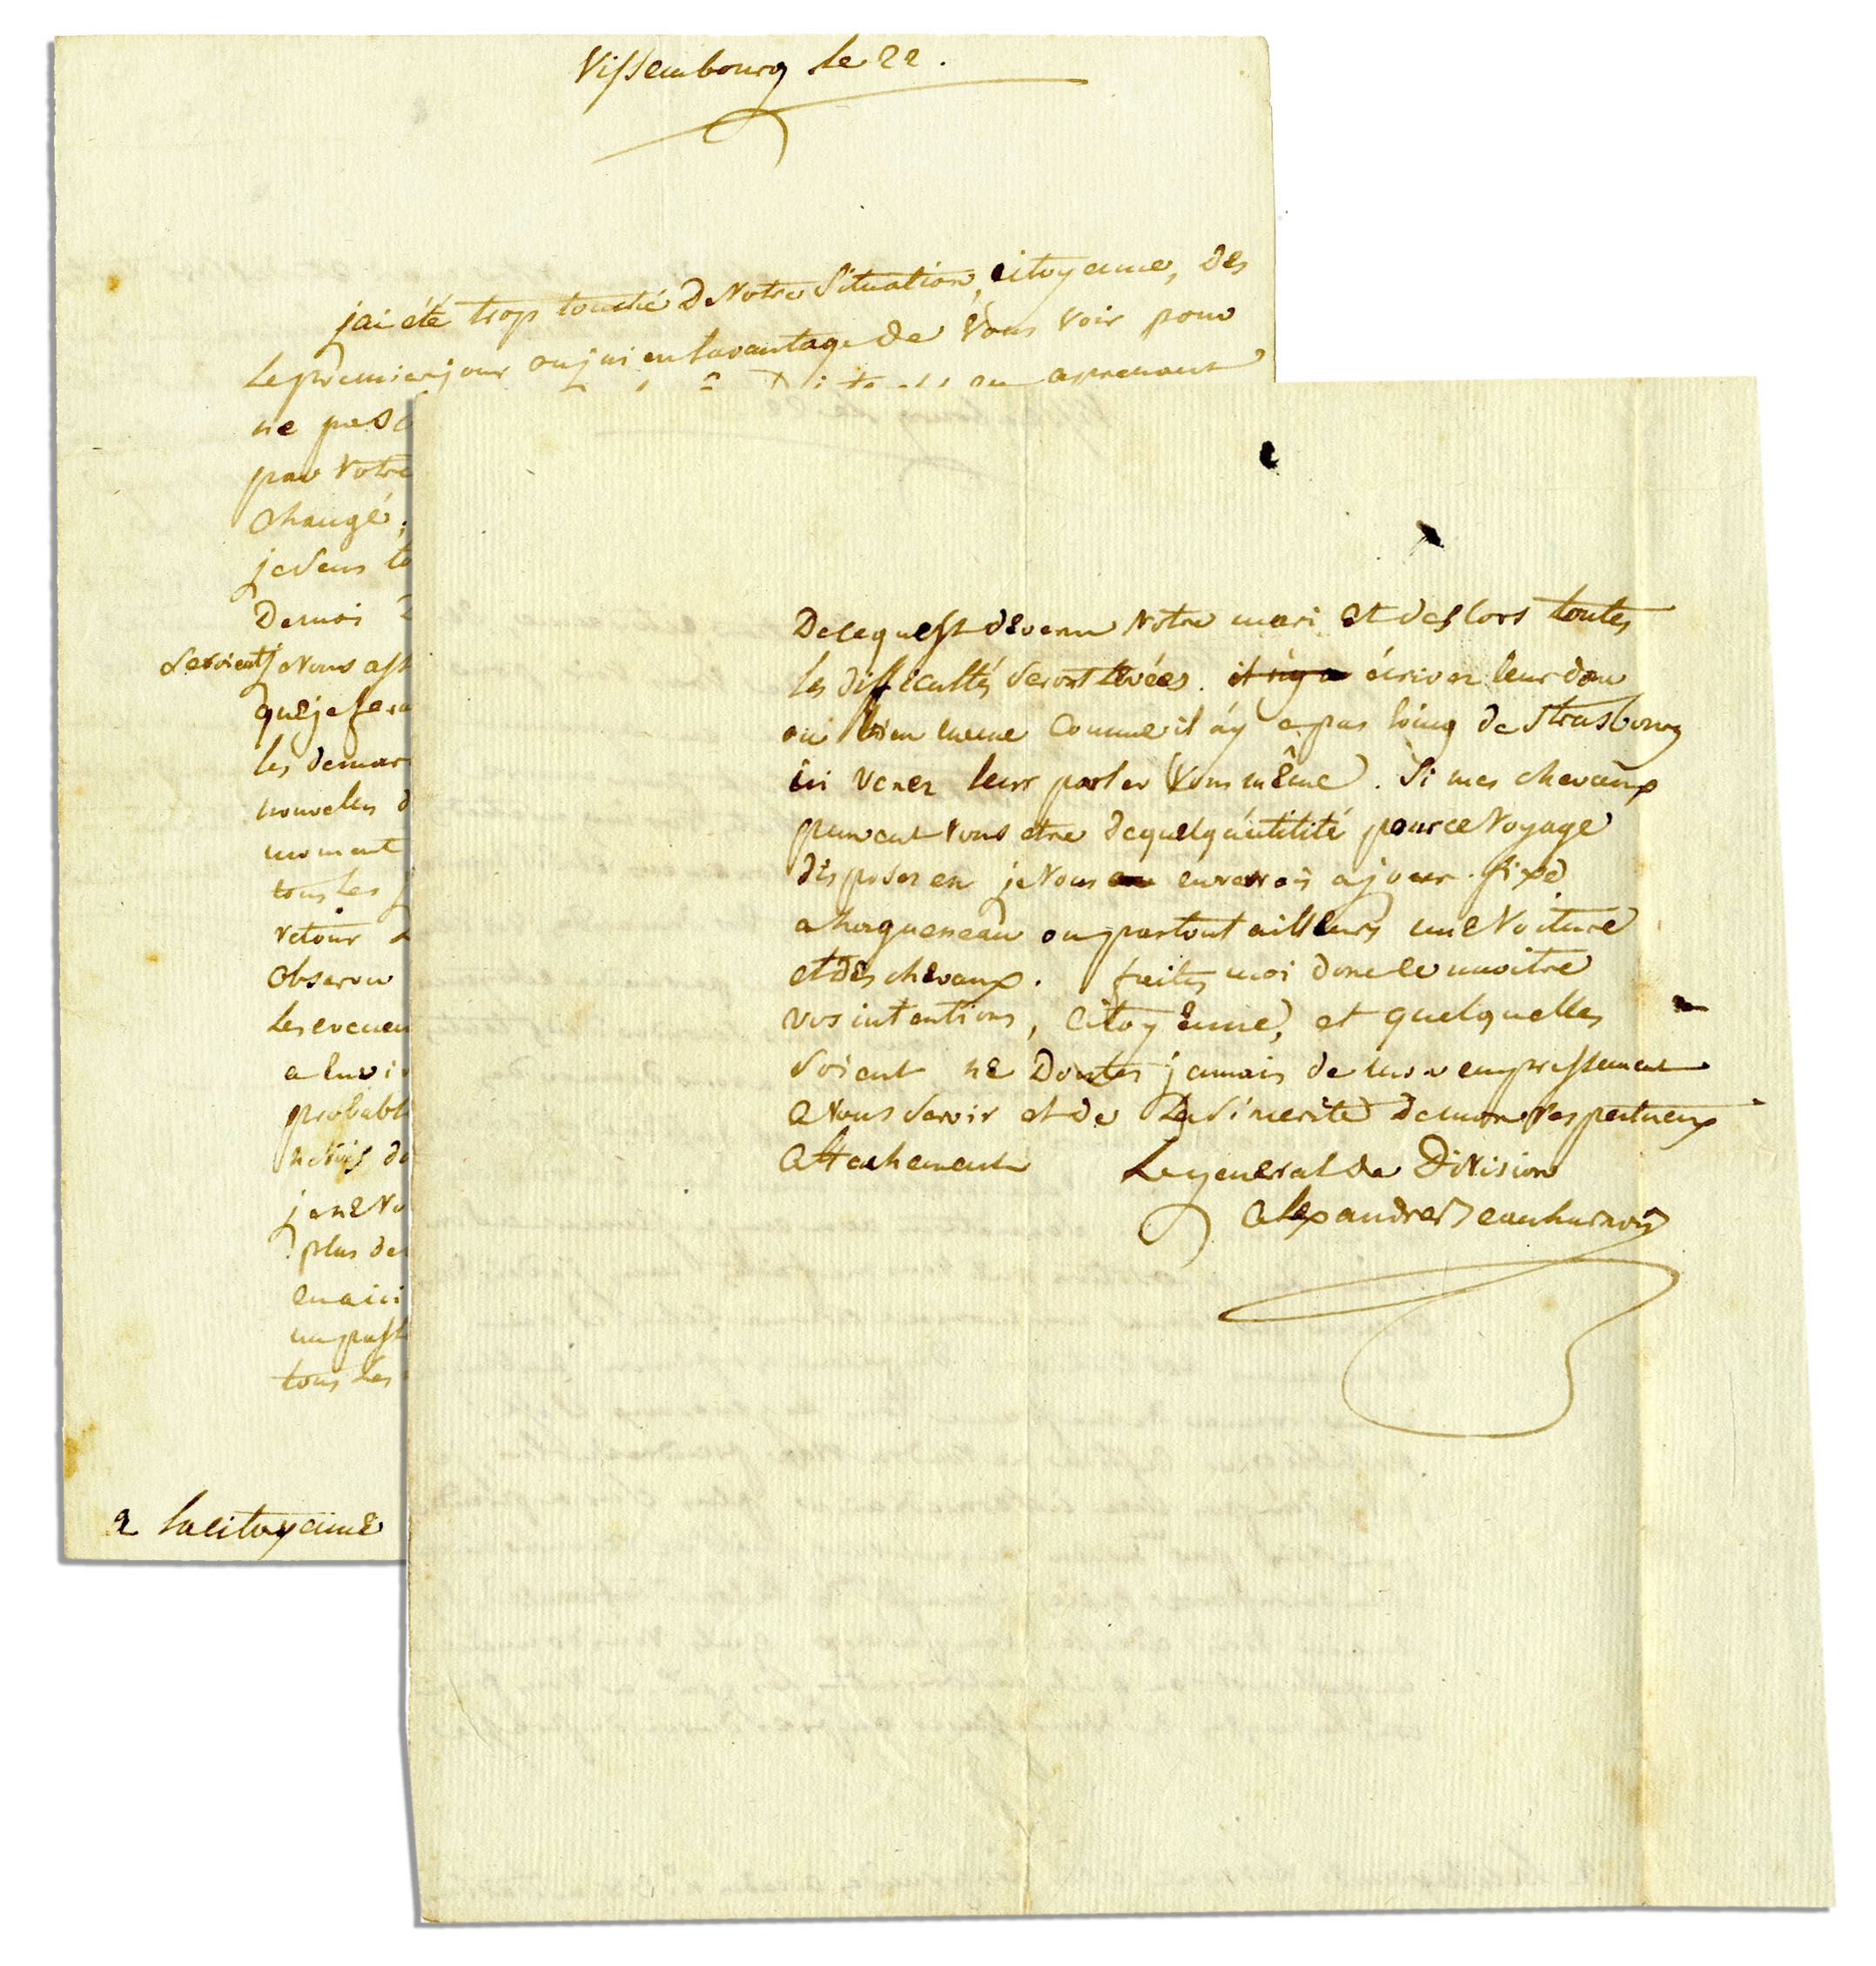 Vissembourg le 22.
j'ai été trop touché de Votre Situation, citoyenne, des
le premier jour ou j'ai eu l'avantage de Vous Voir pour
ne pas
aprenant
par Votre
changé,
je sens
Demoi
seroient je Vous ass
que je fera
les demar
nouvelles d
moment
tous les
retour
observer
les evenem
a l'envi
probabl
je ne Vo
plus de
en aici
un post
tous les
a la citoyenne
De ce qu'est devenu Votre mari et des lors toutes
les difficultés seront levées. il n'y a écrivez leur donc
ou bien meme comme il n'y a pas loing de Strasbourg
ici venez leur parler Vous même. Si mes chevaux
peuvent Vous etre de quelqu'utilité pour ce Voyage
disposez en je Vous enverrois a jour fixé
a haguenau ou partout ailleurs une Voiture
et des chevaux. faites moi donc connoitre
vos intentions, citoyenne, et quelquelles
soient ne Doutez jamais de mon empressement
a Vous servir et de la sincerité de mon respectueux
attachement Le general de Division
alexandre Beauharnois